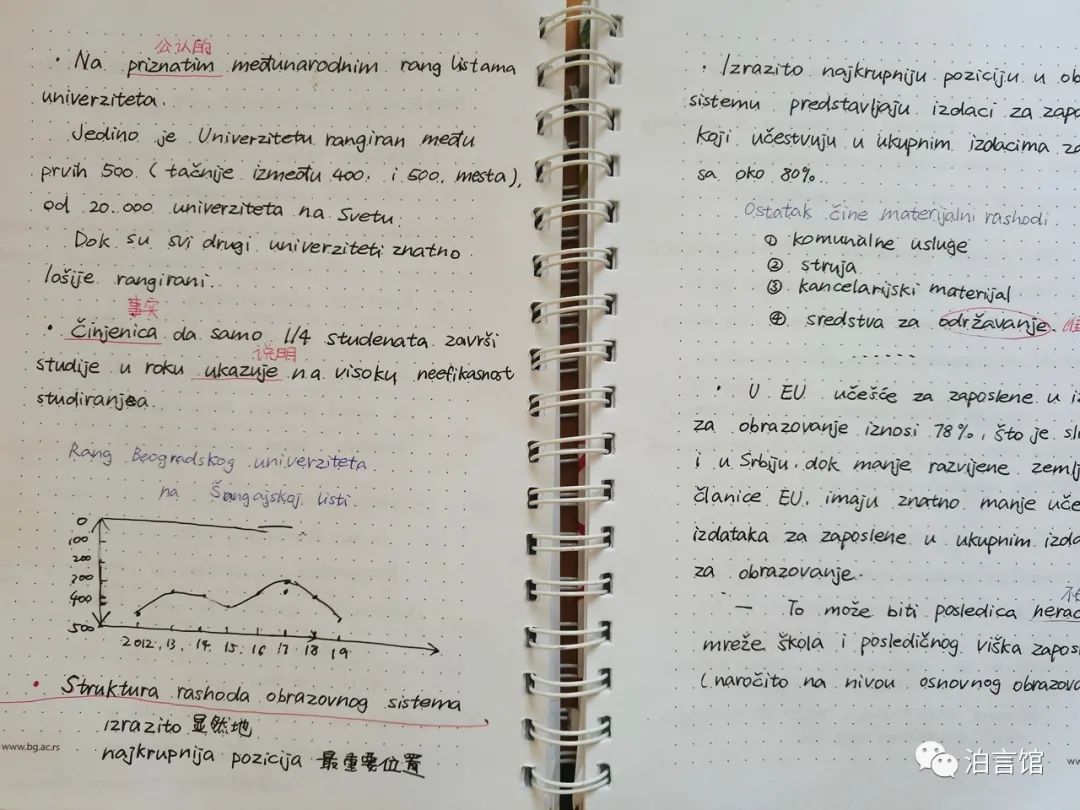 公认的
· Na priznatim međunarodnim rang listama
univerziteta.
Jedino je Univerzitetu rangiran među
prvih 500 (tačnije između 400. i 500. mesta),
od 20.000 univerziteta na Svetu.
Dok su svi drugi univerziteti znatno
lošije rangirani.
事实
· Činjenica da samo 1/4 studenata završi
说明
studije u roku ukazuje na visoku neefikasnost
studiranja.
Rang Beogradskog univerziteta
na Šangajskoj listi
0
100
200
300
400
500
2012. 13. 14. 15. 16 17 18 19
· Struktura rashoda obrazovnog sistema
izrazito 显然地
najkrupnija pozicija 最重要位置
www.bg.ac.rs
· Izrazito najkrupniju poziciju u ob
sistemu predstavljaju izdaci za zapo
koji učestvuju u ukupnim izdacima za
sa oko 80%.
Ostatak čine materijalni rashodi
① komunalne usluge
② struja
③ kancelarijski materijal
④ sredstva za održavanje.
......
· U EU učešće za zaposlene u iz
za obrazovanje iznosi 78%, što je sli
i u Srbiju. dok manje razvijene zemlj
članice EU, imaju znatno manje uče
izdataka za zaposlene u ukupnim izda
za obrazovanje.
不
— To može biti posledica nerac
mreže škola i posledičnog viška zaposl
(naročito na nivou osnovnog obrazova
泊言馆
ww